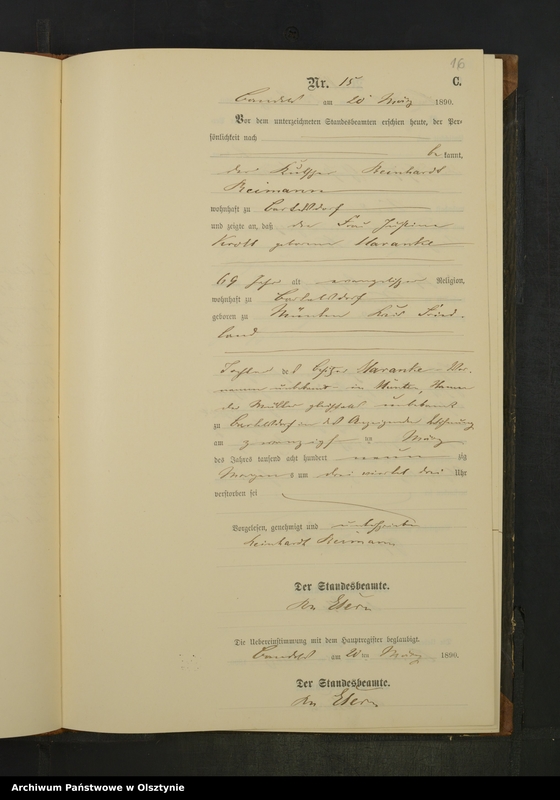 16
Nr. 15 C.
am 20 März 1890.
Vor dem unterzeichneten Standesbeamten erschien heute, der Per-
sönlichkeit nach
be kannt,
der Reinhardt
Reimann
wohnhaft zu Bartelsdorf
und zeigte an, daß die Frau Justine
Krott geborene Maranke
69 Jahr alt evangelischer Religion,
wohnhaft zu Bartelsdorf
geboren zu Münken Kreis Fried-
land
Tochter des Besitzer Maranke Vor-
namen unbekannt in Name
der Mutter gleichfalls unbekannt
zu Bartelsdorf in des Anzeigenden Wohnung
am zwanzigsten März
des Jahres tausend acht hundert neun zig
Morgens um drei viertel drei Uhr
verstorben sei
Vorgelesen, genehmigt und unterschrieben
Reinhardt Reimann
Der Standesbeamte.
Die Uebereinstimmung mit dem Hauptregister beglaubigt.
am 20 ten März 1890.
Der Standesbeamte.
Archiwum Państwowe w Olsztynie